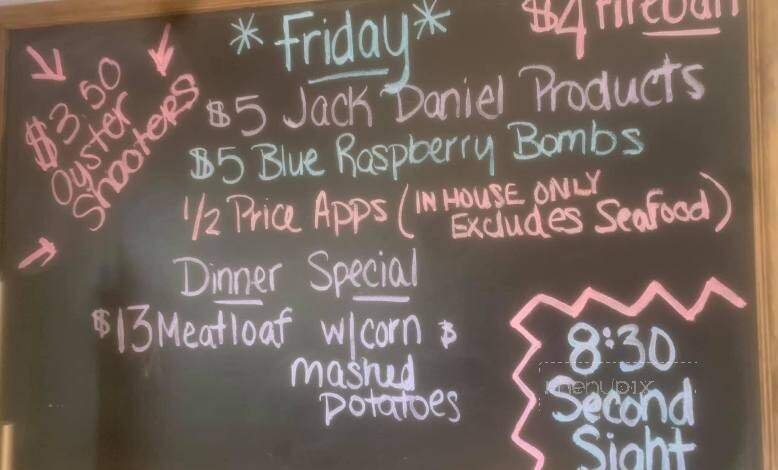 $4 Fireball
* Friday *
$3.50
Oyster
Shooters
$5 Jack Daniel Products
$5 Blue Raspberry Bombs
1/2 Price Apps (IN HOUSE ONLY
Excludes Seafood)
Dinner Special
$13 Meatloaf w/corn $
mashed
potatoes
8:30
menupix
Second
Sight